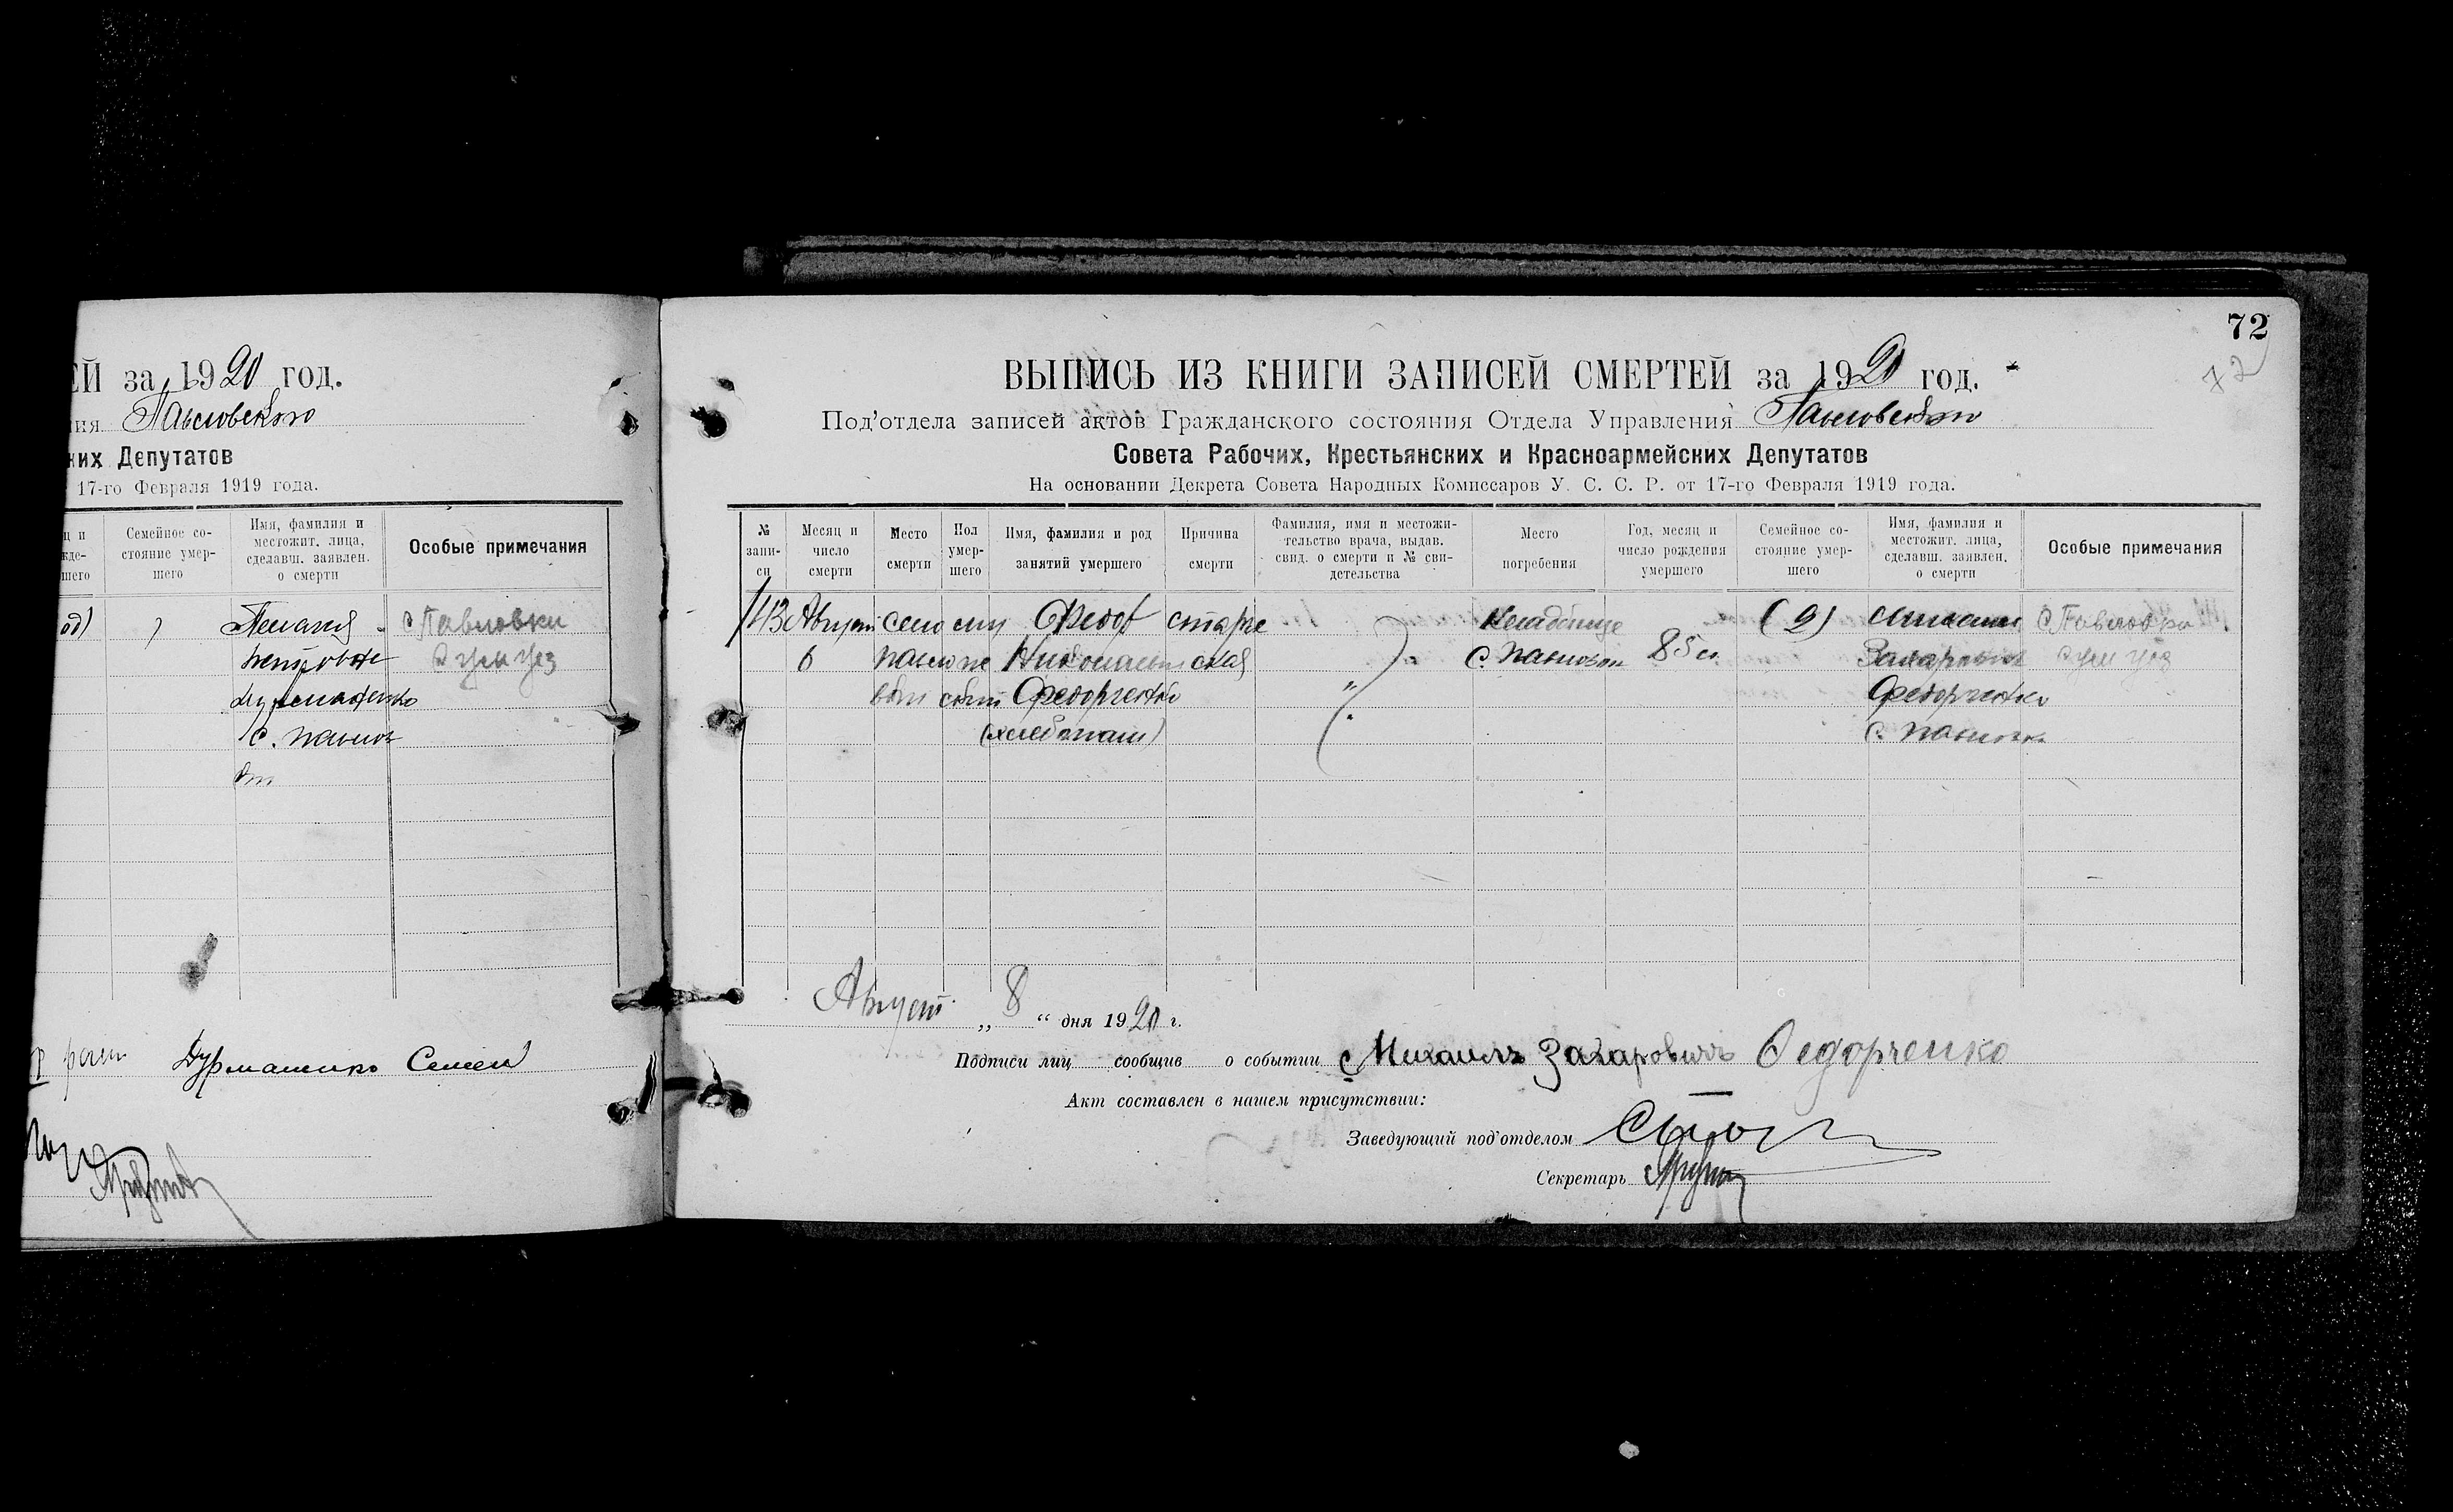 ЕЙ за 1920 год.
ния Павловского
ких Депутатов
17-го Февраля 1919 года.
ц и
жде-
шего
Семейное со-
стояние умер-
шего
Имя, фамилия и
местожит. лица,
сделавш. заявлен.
о смерти
Особые примечания
од)
Пелагея
Петровне
с. Павлов
с Павловки
Дурманенко Семен
72
72
ВЫПИСЬ ИЗ КНИГИ ЗАПИСЕЙ СМЕРТЕЙ за 1920 год.
Под'отдела записей актов Гражданского состояния Отдела Управления Павловского
Совета Рабочих, Крестьянских и Красноармейских Депутатов
На основании Декрета Совета Народных Комиссаров У. С. С. Р. от 17-го Февраля 1919 года.
№
запи-
си
Месяц и
число
смерти
Место
смерти
Пол
умер-
шего
Имя, фамилия и род
занятий умершего
Причина
смерти
Фамилия, имя и местожи-
тельство врача, выдав.
свид. о смерти и № сви-
детельства
Место
погребения
Год, месяц и
число рождения
умершего
Семейное со-
стояние умер-
шего
Имя, фамилия и
местожит. лица,
сделавш. заявлен.
о смерти
Особые примечания
113
Август
6
село
Павло
вки
муж
ской
Федор
Федорченко
(хлебопаш)
старче
ская
Кладбище
с. Павловки
85 л
Захарович
Федорченко
с. Павловка
с Павловка
Август „ 8 “ дня 1920 г.
Подписи лиц сообщив о событии Михаилъ Захаровичъ Федорченко
Акт составлен в нашем присутствии:
Заведующий под'отделом
Секретарь